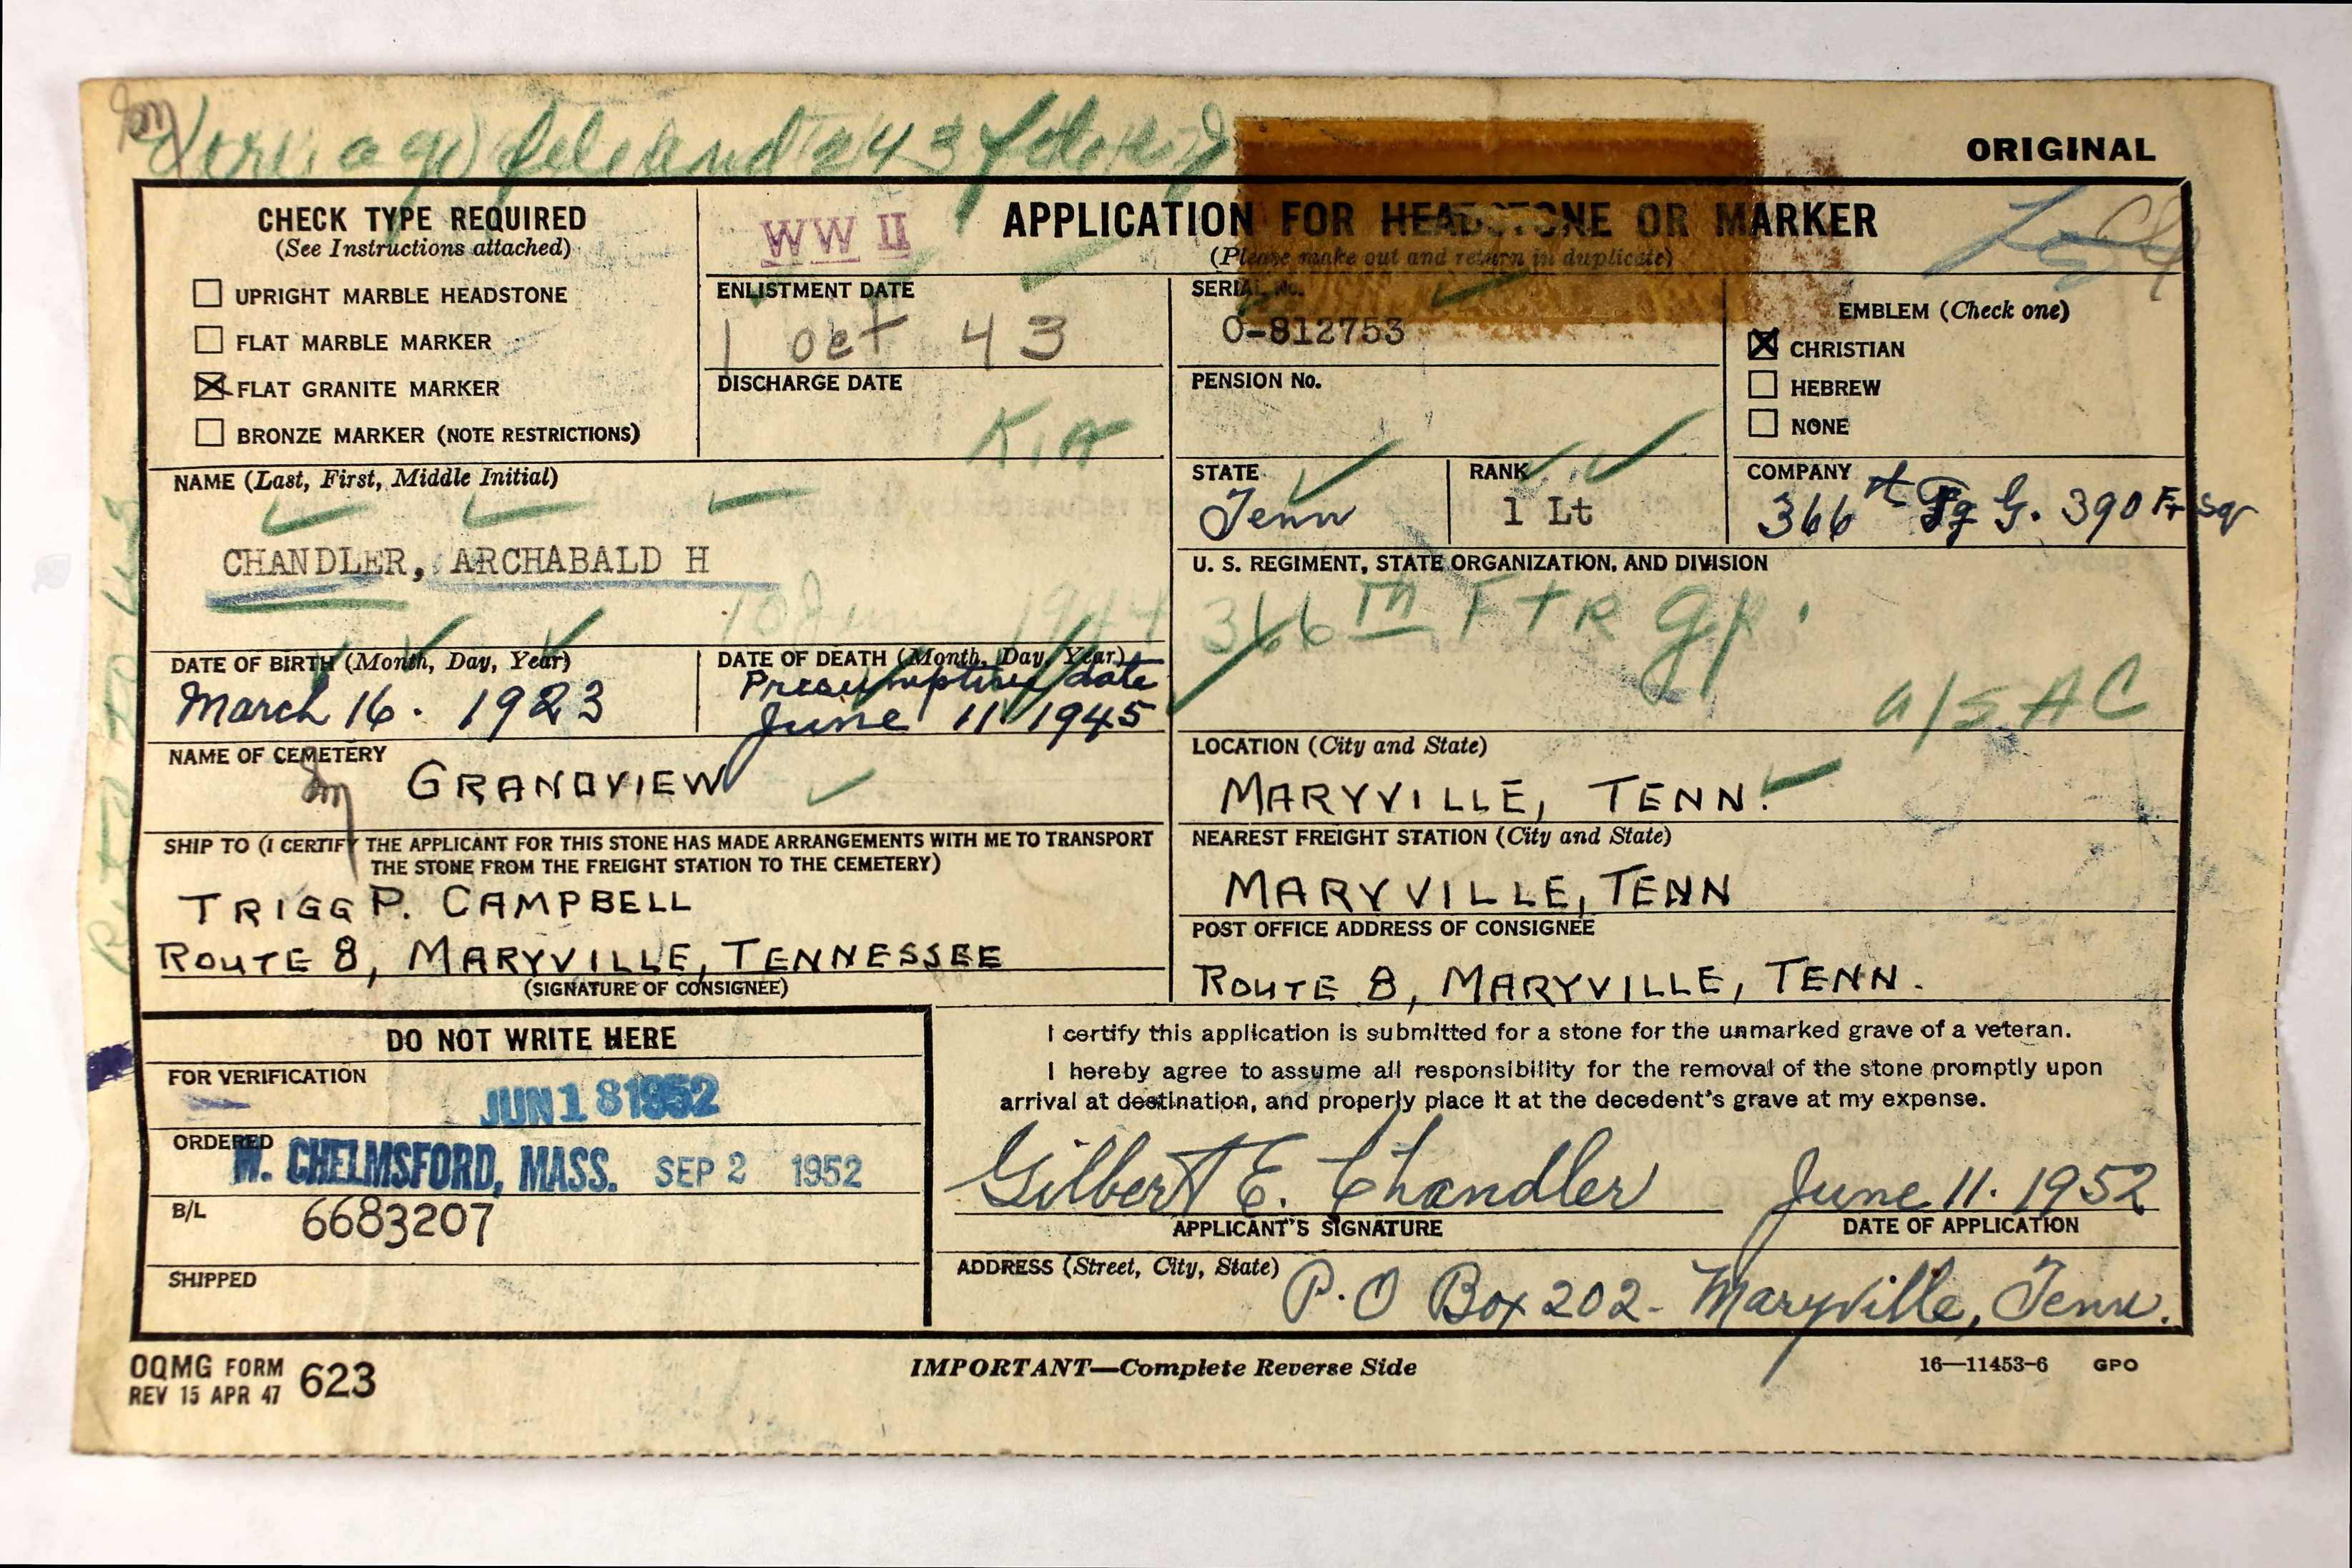 ORIGINAL
CHECK TYPE REQUIRED
(See Instructions attached)
UPRIGHT MARBLE HEADSTONE
FLAT MARBLE MARKER
FLAT GRANITE MARKER
BRONZE MARKER (NOTE RESTRICTIONS)
WW II
APPLICATION FOR HEADSTONE OR MARKER
(Please make out and return in duplicate)
ENLISTMENT DATE
1 Oct 43
DISCHARGE DATE
K.I.A
SERIAL No.
O-812753
PENSION No.
EMBLEM (Check one)
CHRISTIAN
HEBREW
NONE
NAME (Last, First, Middle Initial)
CHANDLER, ARCHABALD H
STATE
Tenn
RANK
1 Lt
COMPANY
366th G. 390 Ftr Sq
U. S. REGIMENT, STATE ORGANIZATION, AND DIVISION
366th FTR gp.
A/S AC
DATE OF BIRTH (Month, Day, Year)
March 16. 1923
10 June 1944
DATE OF DEATH (Month, Day, Year)
Presumptive date
June 11 1945
NAME OF CEMETERY
GRANDVIEW
LOCATION (City and State)
MARYVILLE, TENN.
SHIP TO (I CERTIFY THE APPLICANT FOR THIS STONE HAS MADE ARRANGEMENTS WITH ME TO TRANSPORT
THE STONE FROM THE FREIGHT STATION TO THE CEMETERY)
TRIGG P. CAMPBELL
ROUTE 8, MARYVILLE, TENNESSEE
(SIGNATURE OF CONSIGNEE)
NEAREST FREIGHT STATION (City and State)
MARYVILLE, TENN
POST OFFICE ADDRESS OF CONSIGNEE
ROUTE 8, MARYVILLE, TENN.
DO NOT WRITE HERE
FOR VERIFICATION
JUN 18 1952
ORDERED
W. CHELMSFORD, MASS. SEP 2 1952
B/L
6683207
SHIPPED
I certify this application is submitted for a stone for the unmarked grave of a veteran.
I hereby agree to assume all responsibility for the removal of the stone promptly upon
arrival at destination, and properly place it at the decedent's grave at my expense.
Gilbert E. Chandler June 11. 1952
APPLICANT'S SIGNATURE DATE OF APPLICATION
ADDRESS (Street, City, State)
P.O Box 202- Maryville, Tenn.
OQMG FORM 623
REV 15 APR 47
IMPORTANT—Complete Reverse Side
16—11453-6 GPO